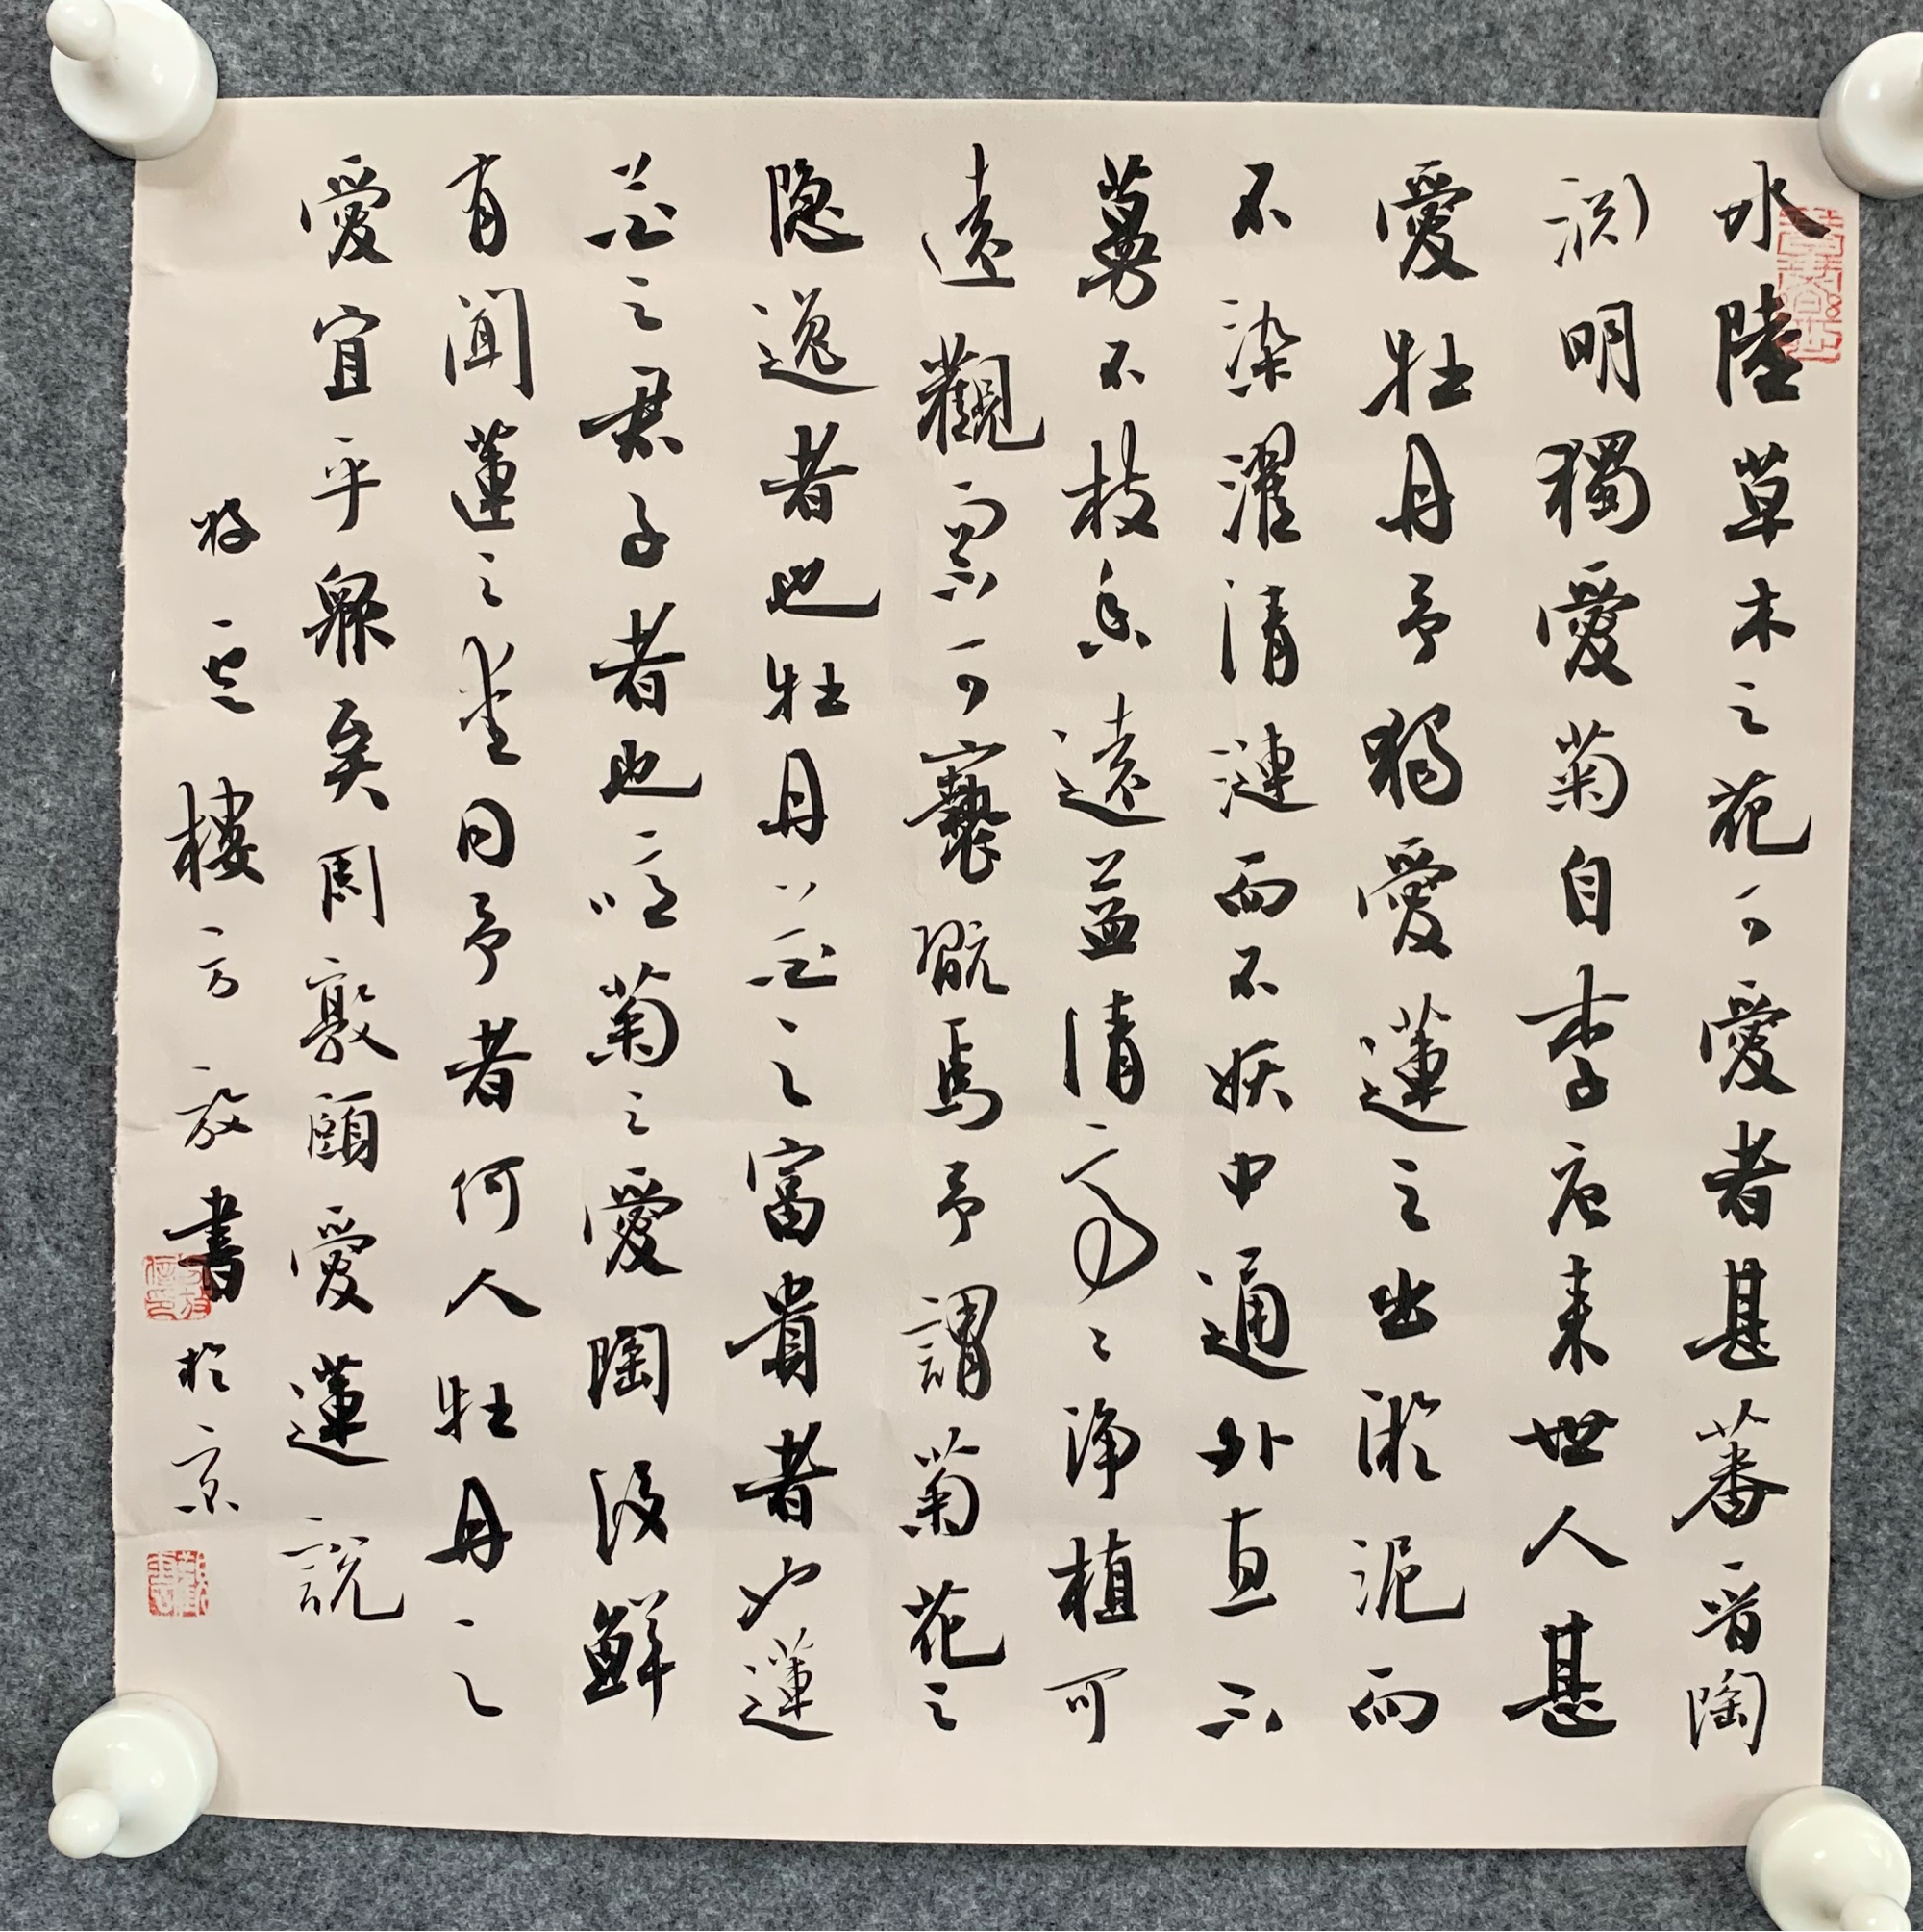 水陸草木之花可愛者甚蕃晉陶
淵明獨愛菊自李唐来世人甚
愛牡丹予獨愛蓮之出淤泥而
不染濯清漣而不妖中通外直不
蔓不枝香遠益清亭〻淨植可
遠觀而不可褻翫焉予謂菊花之
隐逸者也牡丹花之富貴者也蓮
花之君子者也噫菊之愛陶後鮮
有聞蓮之愛同予者何人牡丹之
愛宜乎眾矣周敦頤愛蓮說
樓方放書於京